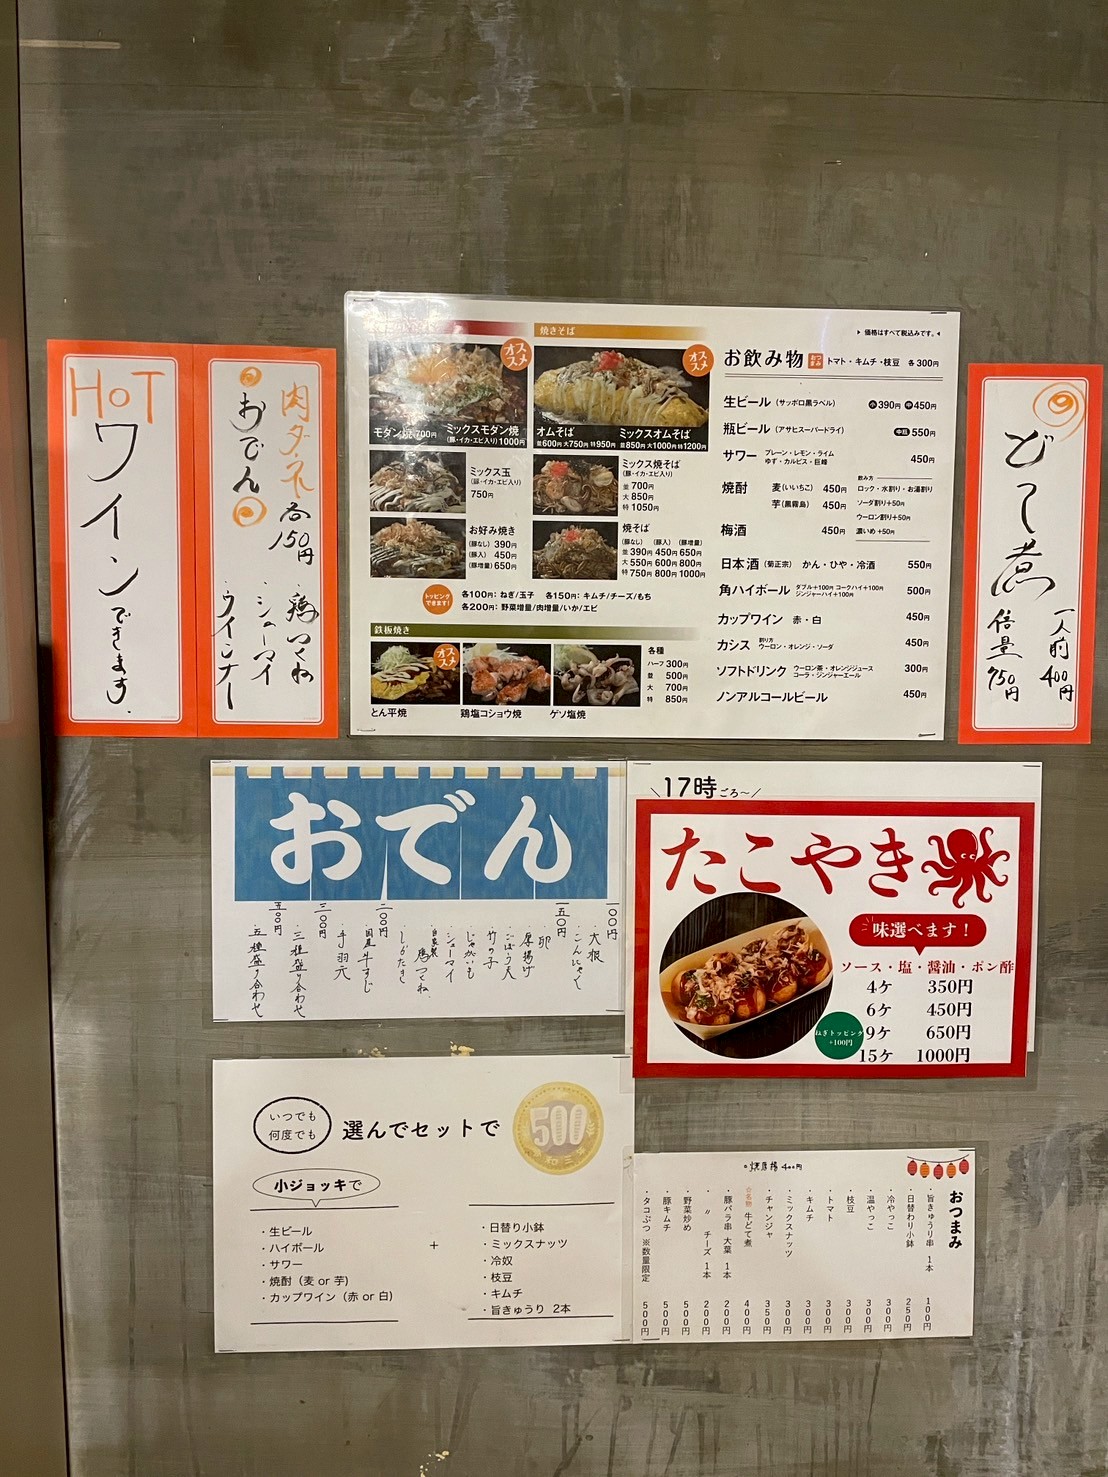 HoT
ワインできます.
肉ダネ各150円
おでん
・鶏つくね
・シューマイ
・ウインナー
オススメ
モダン焼 700円
ミックスモダン焼
(豚・イカ・エビ入り) 1000円
ミックス玉
(豚・イカ・エビ入り)
750円
お好み焼き
(豚なし) 390円
(豚入) 450円
(豚増量) 650円
焼きそば
オススメ
オムそば
並600円 大750円 特950円
ミックスオムそば
並850円 大1000円 特1200円
ミックス焼そば
(豚・イカ・エビ入り)
並 700円
大 850円
特 1050円
焼そば
(豚なし) (豚入) (豚増量)
並 390円 450円 650円
大 550円 600円 800円
特 750円 800円 1000円
トッピングできます!
各100円: ねぎ/玉子 各150円: キムチ/チーズ/もち
各200円: 野菜増量/肉増量/いか/エビ
鉄板焼き
オススメ
とん平焼
鶏塩コショウ焼
ゲソ塩焼
各種
ハーフ 300円
並 500円
大 700円
特 850円
▶ 価格はすべて税込みです。◀
お飲み物 おつまみ トマト・キムチ・枝豆 各300円
生ビール (サッポロ黒ラベル) 小390円 中450円
瓶ビール (アサヒスーパードライ) 中瓶 550円
サワー プレーン・レモン・ライム
ゆず・カルピス・巨峰 450円
焼酎 麦(いいちこ) 450円
芋(黒霧島) 450円
飲み方
ロック・水割り・お湯割り
ソーダ割り+50円
ウーロン割り+50円
濃いめ +50円
梅酒 450円
日本酒 (菊正宗) かん・ひや・冷酒 550円
角ハイボール ダブル+100円 コークハイ+100円
ジンジャーハイ+100円 500円
カップワイン 赤・白 450円
カシス 割り方
ウーロン・オレンジ・ソーダ 450円
ソフトドリンク ウーロン茶・オレンジジュース
コーラ・ジンジャーエール 300円
ノンアルコールビール 450円
どて煮
一人前400円
倍量750円
おでん
一〇〇円
・大根
・こんにゃく
一五〇円
・卵
・厚揚げ
・ごぼう天
・竹の子
・じゃがいも
・シューマイ
・自家製鶏つくね
・しらたき
二〇〇円
・国産牛すじ
・手羽元
三〇〇円
・三種盛り合わせ
五〇〇円
・五種盛り合わせ
＼17時ごろ～／
たこやき
味選べます!
ソース・塩・醤油・ポン酢
4ケ 350円
6ケ 450円
9ケ 650円
15ケ 1000円
ねぎトッピング
+100円
いつでも
何度でも
選んでセットで
500
小ジョッキで
・生ビール
・ハイボール
・サワー
・焼酎（麦 or 芋)
・カップワイン（赤 or 白)
+
・日替り小鉢
・ミックスナッツ
・冷奴
・枝豆
・キムチ
・旨きゅうり 2本
おつまみ
・旨きゅうり串 1本 100円
・日替わり小鉢 250円
・冷やっこ 300円
・温やっこ 300円
・枝豆 300円
・トマト 300円
・キムチ 300円
・ミックスナッツ 300円
・チャンジャ 350円
☆名物 牛どて煮 400円
・豚バラ串 大葉 1本 200円
・ 〃 チーズ 1本 200円
・野菜炒め 500円
・豚キムチ 500円
・タコぶつ ※数量限定 500円
○焼厚揚 400円